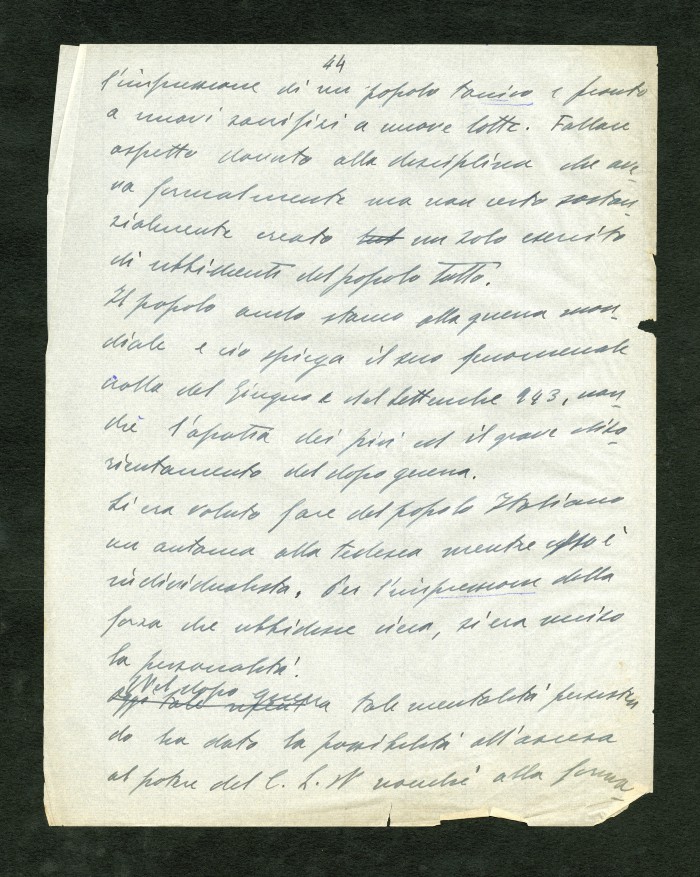 44
l'impressione di un popolo tonico e pronto
a nuovi sacrifizi a nuove lotte. Fallace
aspetto dovuto alla disciplina che ave
va formalmente ma non certo sostan
zialmente creato un solo esercito
di ubbidienti del popolo tutto.
Il popolo andò stanco alla guerra mon
diale e ciò spiega il suo fenomenale
crollo del Giugno e del Settembre 943, non
chè l'apatia dei più ed il grave diso
rientamento del dopo guerra.
Si era voluto fare del popolo Italiano
un automa alla tedesca mentre esso è
individualista. Per l'impressione della
forza che ubbidisce cieca, si era ucciso
la personalità.
Nel dopo guerra tale mentalità persisten
do ha dato la possibilità all'ascesa
al potere del C. L. N nonchè alla forma